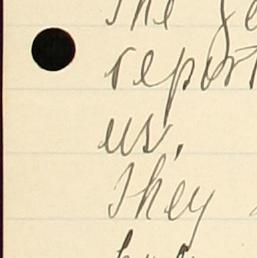 The
report
us,
They